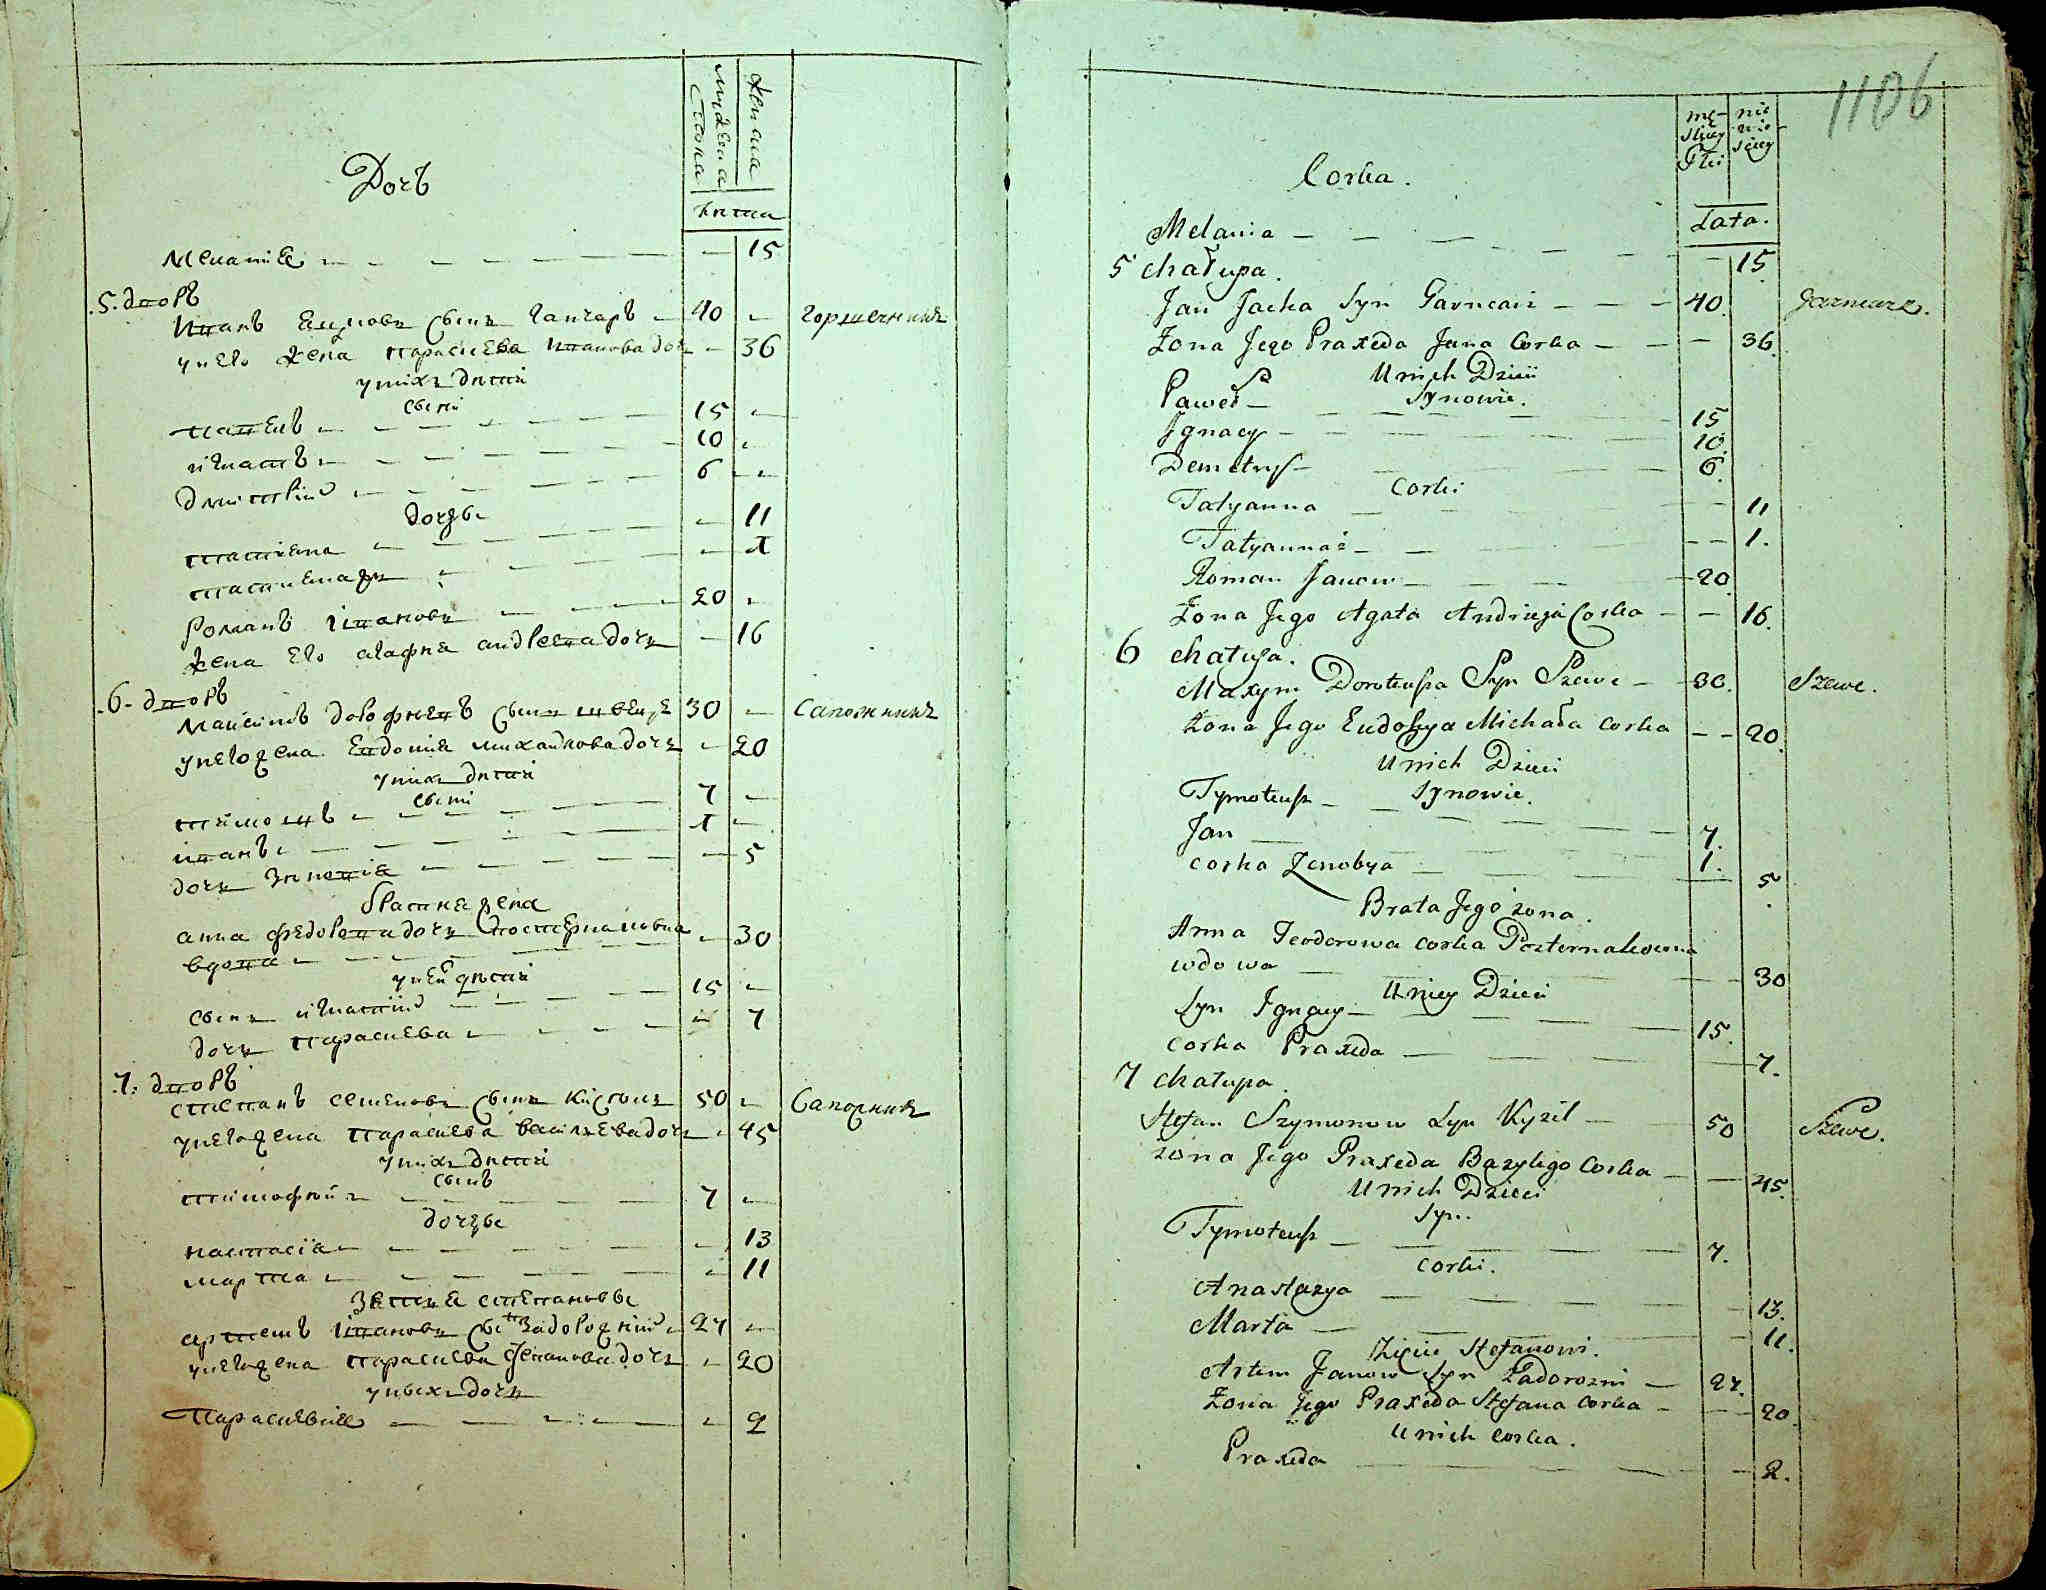 Дочъ
мужеска
пола
женска
Лѣта
Меланія 15
5. дворъ
Иванъ Еацковъ сынъ Ганчаръ 40 горшечникъ
у него жена Параскева Иванова дочь 36
у нихъ дѣти
сыни
Павелъ 15
Игнатъ 10
Дмитрій 6
дочери
Татіана 11
Татіана 1
Романъ Ивановъ 20
жена его Агафия Андреева дочь 16
6. дворъ
Максимъ Дорофеевъ сынъ швецъ 30 Сапожникъ
у него жена Евдокия Михайлова дочь 20
у нихъ дѣти
сыни
7
Иванъ 1
дочь Зиновія 5
братня жена
Анна Федорова дочь 30
вдова
у ней дѣти
сынъ Игнатій 15
дочь Параскева 7
7. дворъ
Степанъ Семеновъ сынъ 50 Сапожникъ
у него жена Параскева Васильева дочь 45
у нихъ дѣти
сынъ
Тимофей 7
дочери
Настасія 13
Марта 11
Степановъ
Артемъ Ивановъ сынъ Задорожній 27
у него жена Параскева Степанова дочь 20
у нихъ дочь
Параскевия 2
1106
mę-
skiey
Płci
nie
wie
sciey
Corka.
Lata.
Melania 15
5 chałupa.
Jan Jacka Syn Garncarz 40. Garncarz.
Żona Jego Praxeda Jana Corka 36.
U nich Dzieci
Synowie.
Paweł 15
Ignacy 10.
Demetry 6.
Corki
Tatyanna 11
Tatyanna 1.
Roman Janow 20
Żona Jego Agata Andrieja Corka 16.
6 chałupa.
Maxym Doroteusza Syn Szewc 30. Szewc.
Żona Jego Eudokya Michała Corka 20.
U nich Dzieci
Synowie.
Tymoteusz 7.
Jan 1.
corka Zenobya 5
Brata Jego żona.
Anna Teodorowa corka
wdowa 30
U niey Dzieci
Syn Ignacy 15.
Corka Praxeda 7.
7 chałupa.
Stefan Szymonow Syn Kyzil 50 Szewc.
żona Jego Praxeda Bazylego Corka 45.
U nich Dzieci
Syn.
Tymoteusz 7.
corki.
Anastazya 13.
Marta 11.
Zięciu Stefanowi.
Artem Janow Syn Zadorozni 27.
Żona Jego Praxeda Stefana Corka 20.
U nich Corka.
Praxeda 2.